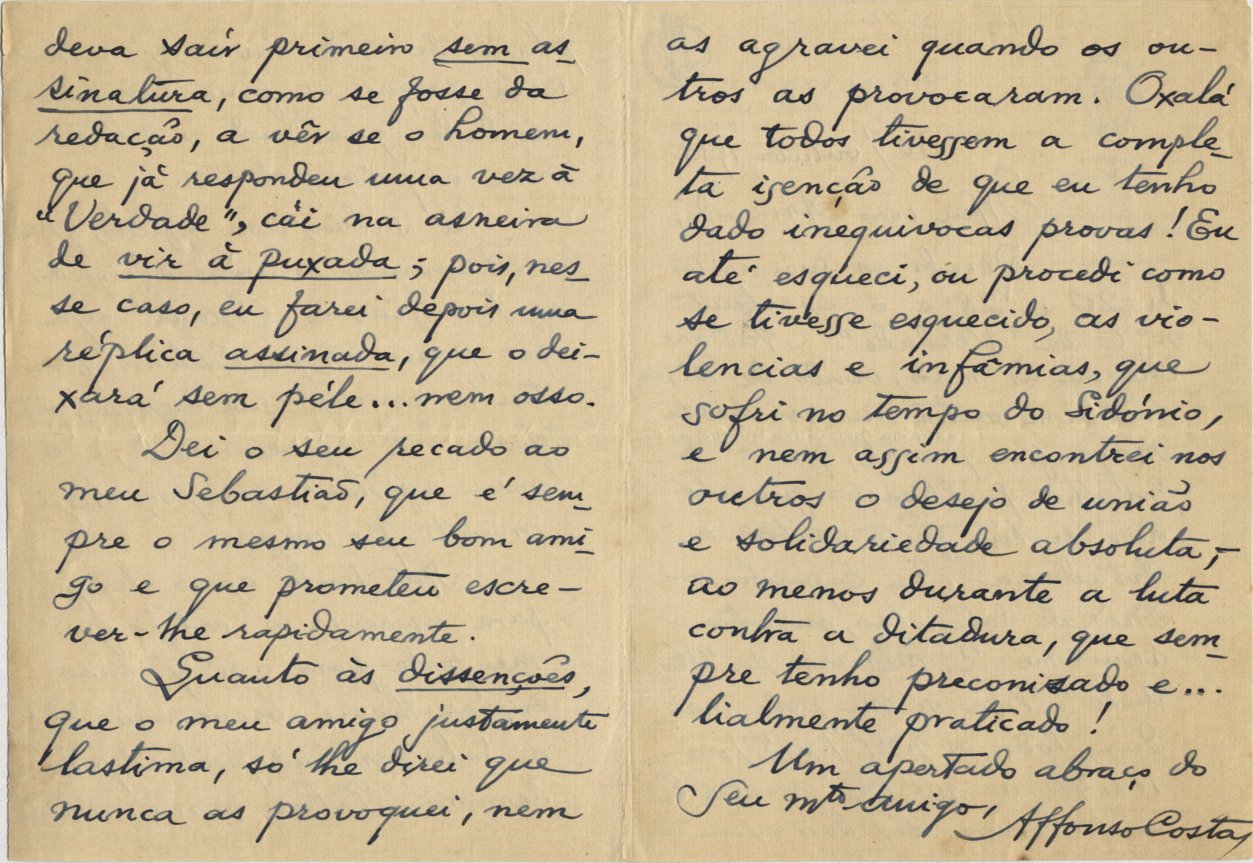 deva sair primeiro sem as-
sinatura, como se fosse da
redacção, a vêr se o homem,
que já respondeu uma vez à
"Verdade", cái na asneira
de vir à puxada; pois, nes-
se caso, eu farei depois uma
réplica assinada, que o dei-
xará sem péle... nem osso.
Dei o seu recado ao
meu Sebastião, que é sem-
pre o mesmo seu bom ami-
go e que prometeu escre-
ver-lhe rapidamente.
Quanto às dissenções,
que o meu amigo justamente
lastima, só lhe direi que
nunca as provoquei, nem
as agravei quando os ou-
tros as provocaram. Oxalá
que todos tivessem a comple-
ta isenção de que eu tenho
dado inequivocas provas! Eu
até esqueci, ou procedi como
se tivesse esquecido, as vio-
lencias e infamias, que
sofri no tempo do Sidónio,
e nem assim encontrei nos
outros o desejo de união
e solidariedade absoluta,-
ao menos durante a luta
contra a ditadura, que sem-
pre tenho preconisado e...
lialmente praticado!
Um apertado abraço do
Seu mto amigo,
Affonso Costa